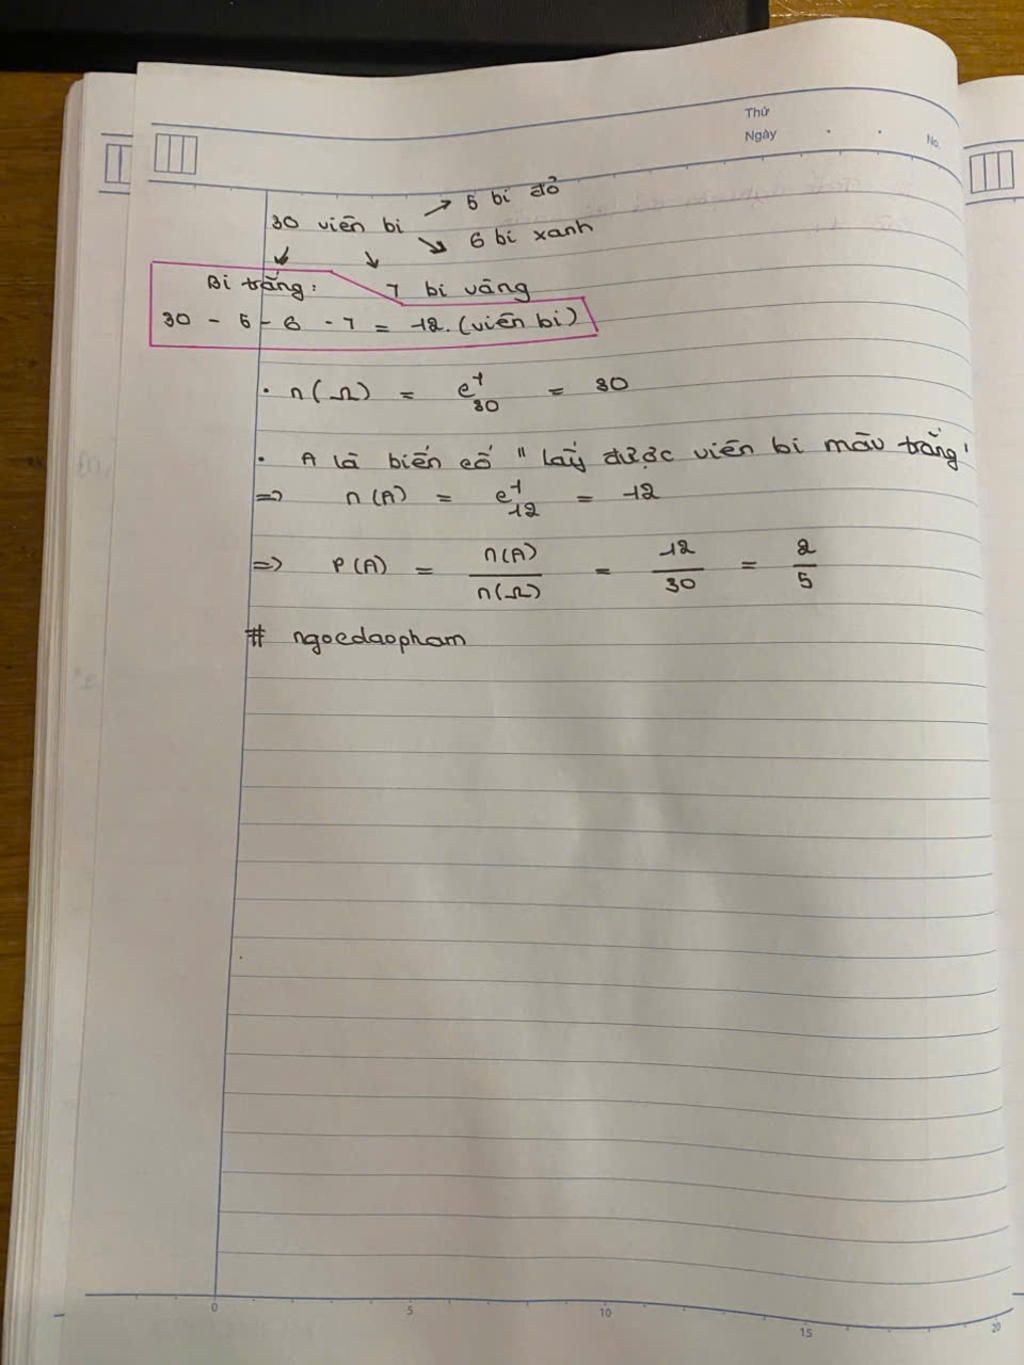 Thứ
Ngày . . No.
30 viên bi → 5 bi đỏ
↘ 6 bi xanh
↙ ↘
Bi trắng: 7 bi vàng
30 - 5 - 6 - 7 = 12. (viên bi)
. n(Ω) = C¹₃₀ = 30
. A là biến cố "lấy được viên bi màu trắng"
=> n(A) = C¹₁₂ = 12
=> P(A) = n(A)/n(Ω) = 12/30 = 2/5
# ngocdaopham
0 5 10 15 20